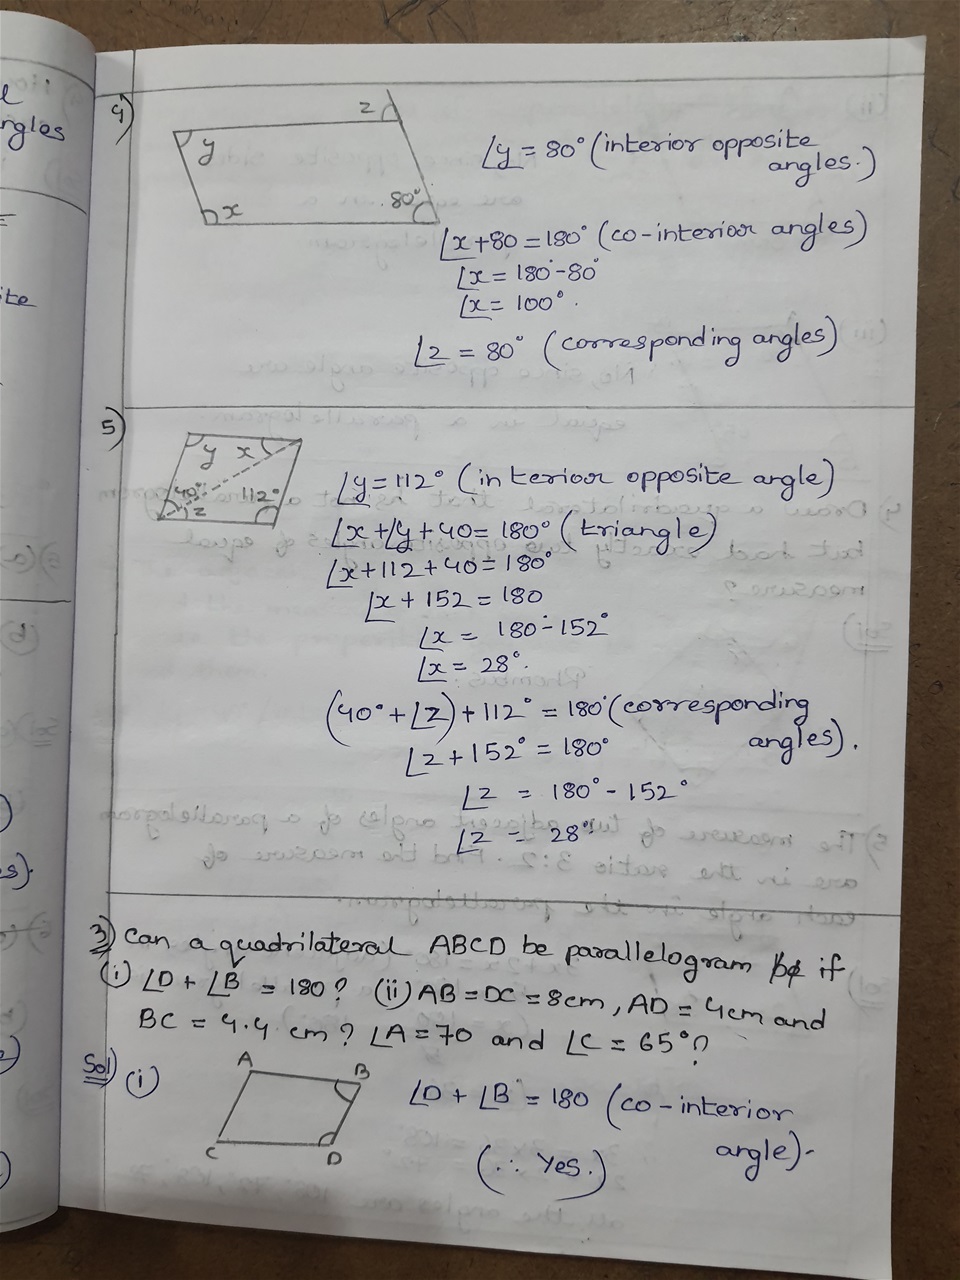 e
ngles
ite
s).
4)
z
y
x
80°
∠y = 80° (interior opposite
angles.)
∠x+80 = 180° (co-interior angles)
∠x = 180°-80°
∠x = 100°.
∠z = 80° (corresponding angles)
5)
y x
40° 112°
z
∠y = 112° (interior opposite angle)
∠x+∠y+40 = 180° (triangle)
∠x+112+40 = 180°
∠x+152 = 180
∠x = 180°-152°
∠x = 28°.
(40°+∠z)+112° = 180° (corresponding
angles).
∠z+152° = 180°
∠z = 180°-152°
∠z = 28°
3) Can a quadrilateral ABCD be parallelogram if
(i) ∠D + ∠B = 180? (ii) AB = DC = 8cm, AD = 4cm and
BC = 4.4 cm? ∠A = 70 and ∠C = 65°?
Sol) (i)
A
B
C
D
∠D + ∠B = 180 (co-interior
angle).
(∴ Yes.)